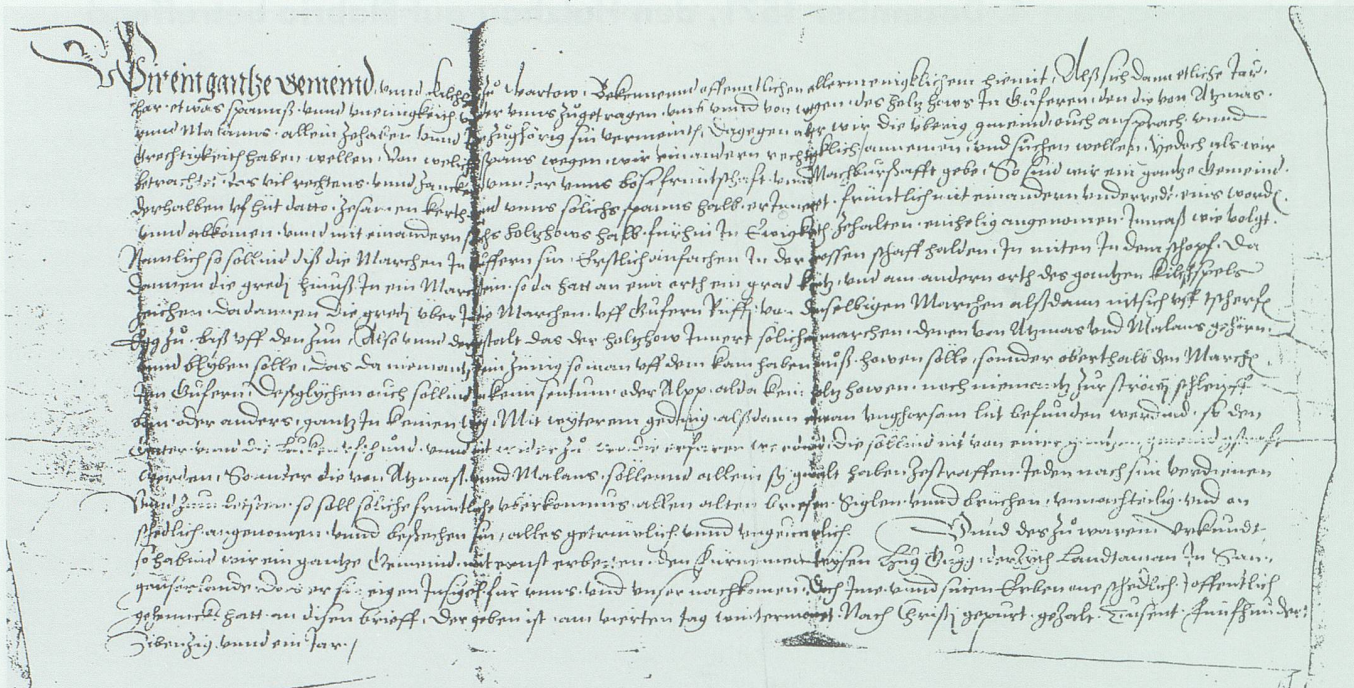 Wir ein gantze Gemeind vnnd kilchh zů Wartow, Bekennend offenntlichen allermenigklichem hiemit, Alß sich dann etliche Jar
har etwas spannß vnnd vneinigkeith vnder vnns zůgetragen, vnnß vnnd von wegen des holtzhows In Gufferen, den die von Atzmas
vnnd Malanns allein zehaben vnnd zůghörig sin vermeint, Dagegen aber wir die überig gmeind ouch ansprach vnnd
Grechtigkeith haben wellen, Von welichs spans wegen wir einandern rechtgklich annemen vnd suchen wellen, Yedoch als wir
betrachtet das vil rechtens vnnd zanck vnnder vnns böse fründtschafft vnnd Nachburschafft gebe, So sind wir ein gantze Gemeind
derhalben vf hüt datto zesamen kerth vnd vnns solichs spanns halb früntlich mit einandern vnderredt eins worden
vnnd abkomen vnnd mit einandern holtzhows halb fürhin In Ewigkeit zehalten einhelig angenomen, Inmaß wie volgt
Namlich so sollind diß die Marchen In Guffern sin, Erstlich anfachen In der schaffhalden In miten In dem schopf, Da
dannen die gredj hinuß In ein Marchstein, so da hatt an eim orth ein grad krütz vnd am andern orth des gantzen kilchspels
zeichen, da dannen die gredj über die Marchen vff Gufern Rüffj, von denselbigen Marchen alßdann nitsich vff tscherf
zů biß vff den zun, Also vnnd dergstalt das der holtzhow Innert solichen marchen denen von Atzmas vnd Malans gehörn
vnnd blyben solle, das da niemantz kein zünig so man vff dem kam haben muß howen sölle, sonnder oberthalb den Marchen
In Gufern, Deßglychen ouch sollind kein sentum oder Alpp alda kein holtz howen, noch niemantz zur ströwj schleipff
oder anders, gantz In keinen weg, Mit wyterem geding, alßdann etwan vnghorsam lüt befunden werdind, so den
die söllind nit von einer gantzen gmeind gstrafft
werden, Sonnder die von Atzmaß vnnd Malans söllennd allein sy gwalt haben zestraffen Jeden nach sim verdienen
so soll söliche früntliche überkomnus allen alten briefen, Siglen vnnd brüchen, vnnachteilig vnd on
schedlich angenomen vnnd beschechen sin, alles getrüwlich vnnd vngevarlich. Vnnd des zů warem Vrkundt
so habind wir ein gantze Gemeind mit ernst erbetten den fürnemen wysen Hug Grygg, der Zyth Landtaman In San
ganserlande, das er sin eigen Insigel für vnns vnd vnser nachkomen, Doch Ime vnnd sinen Erben one schedlich, offentlich
gehenneckt hatt an disen brieff, Der geben ist am vierten tag wintermonet Nach Christj gepurt gezalt Tusent Fünfhundert
Sibenzig vnnd ein Jar.